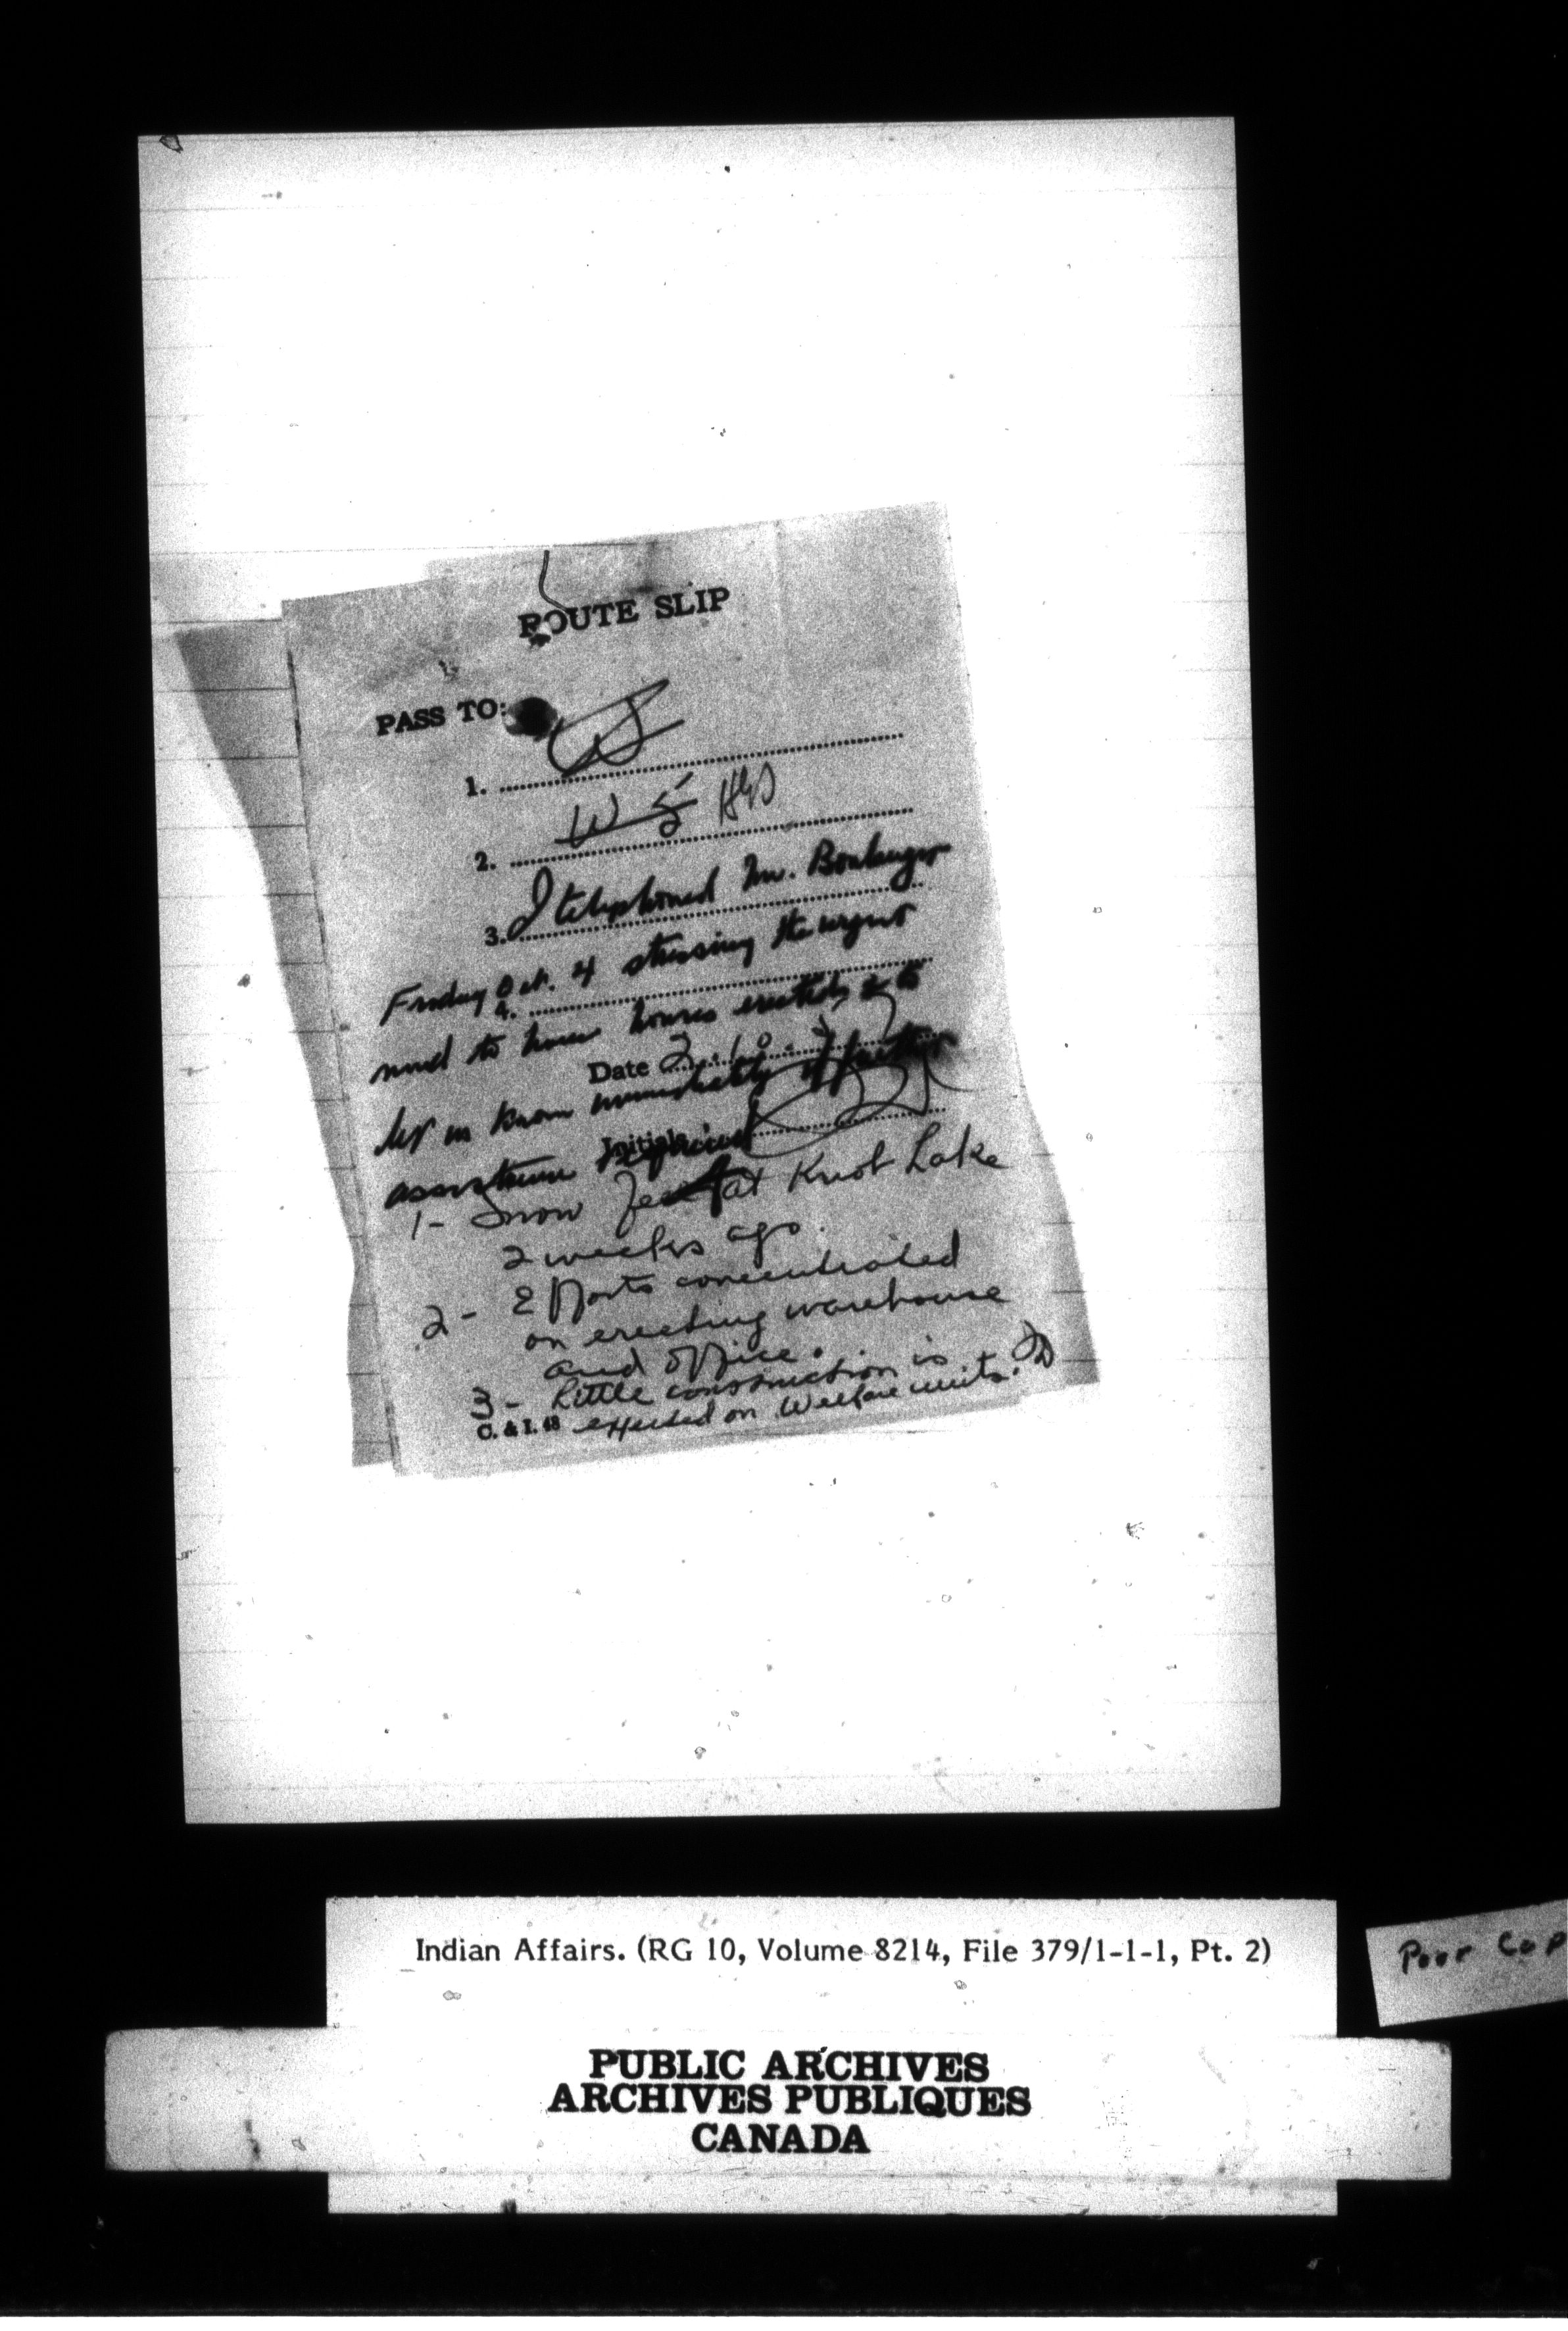 ROUTE SLIP
PASS TO:
1.
2. W 5
3. I telephoned Mr. Boulanger
Friday Oct. 4 stressing the urgent
4.
need to have houses erected & to
Date 2.10.
let us know immediately if further
Initials
assistance required
1- Snow fell at Knob Lake
2 weeks ago.
2- Efforts concentrated
on erecting warehouse
and office.
3- Little construction is
C. & I. 48 expected on Welfare units.
Indian Affairs. (RG 10, Volume 8214, File 379/1-1-1, Pt. 2)
Poor Cop
PUBLIC ARCHIVES
ARCHIVES PUBLIQUES
CANADA